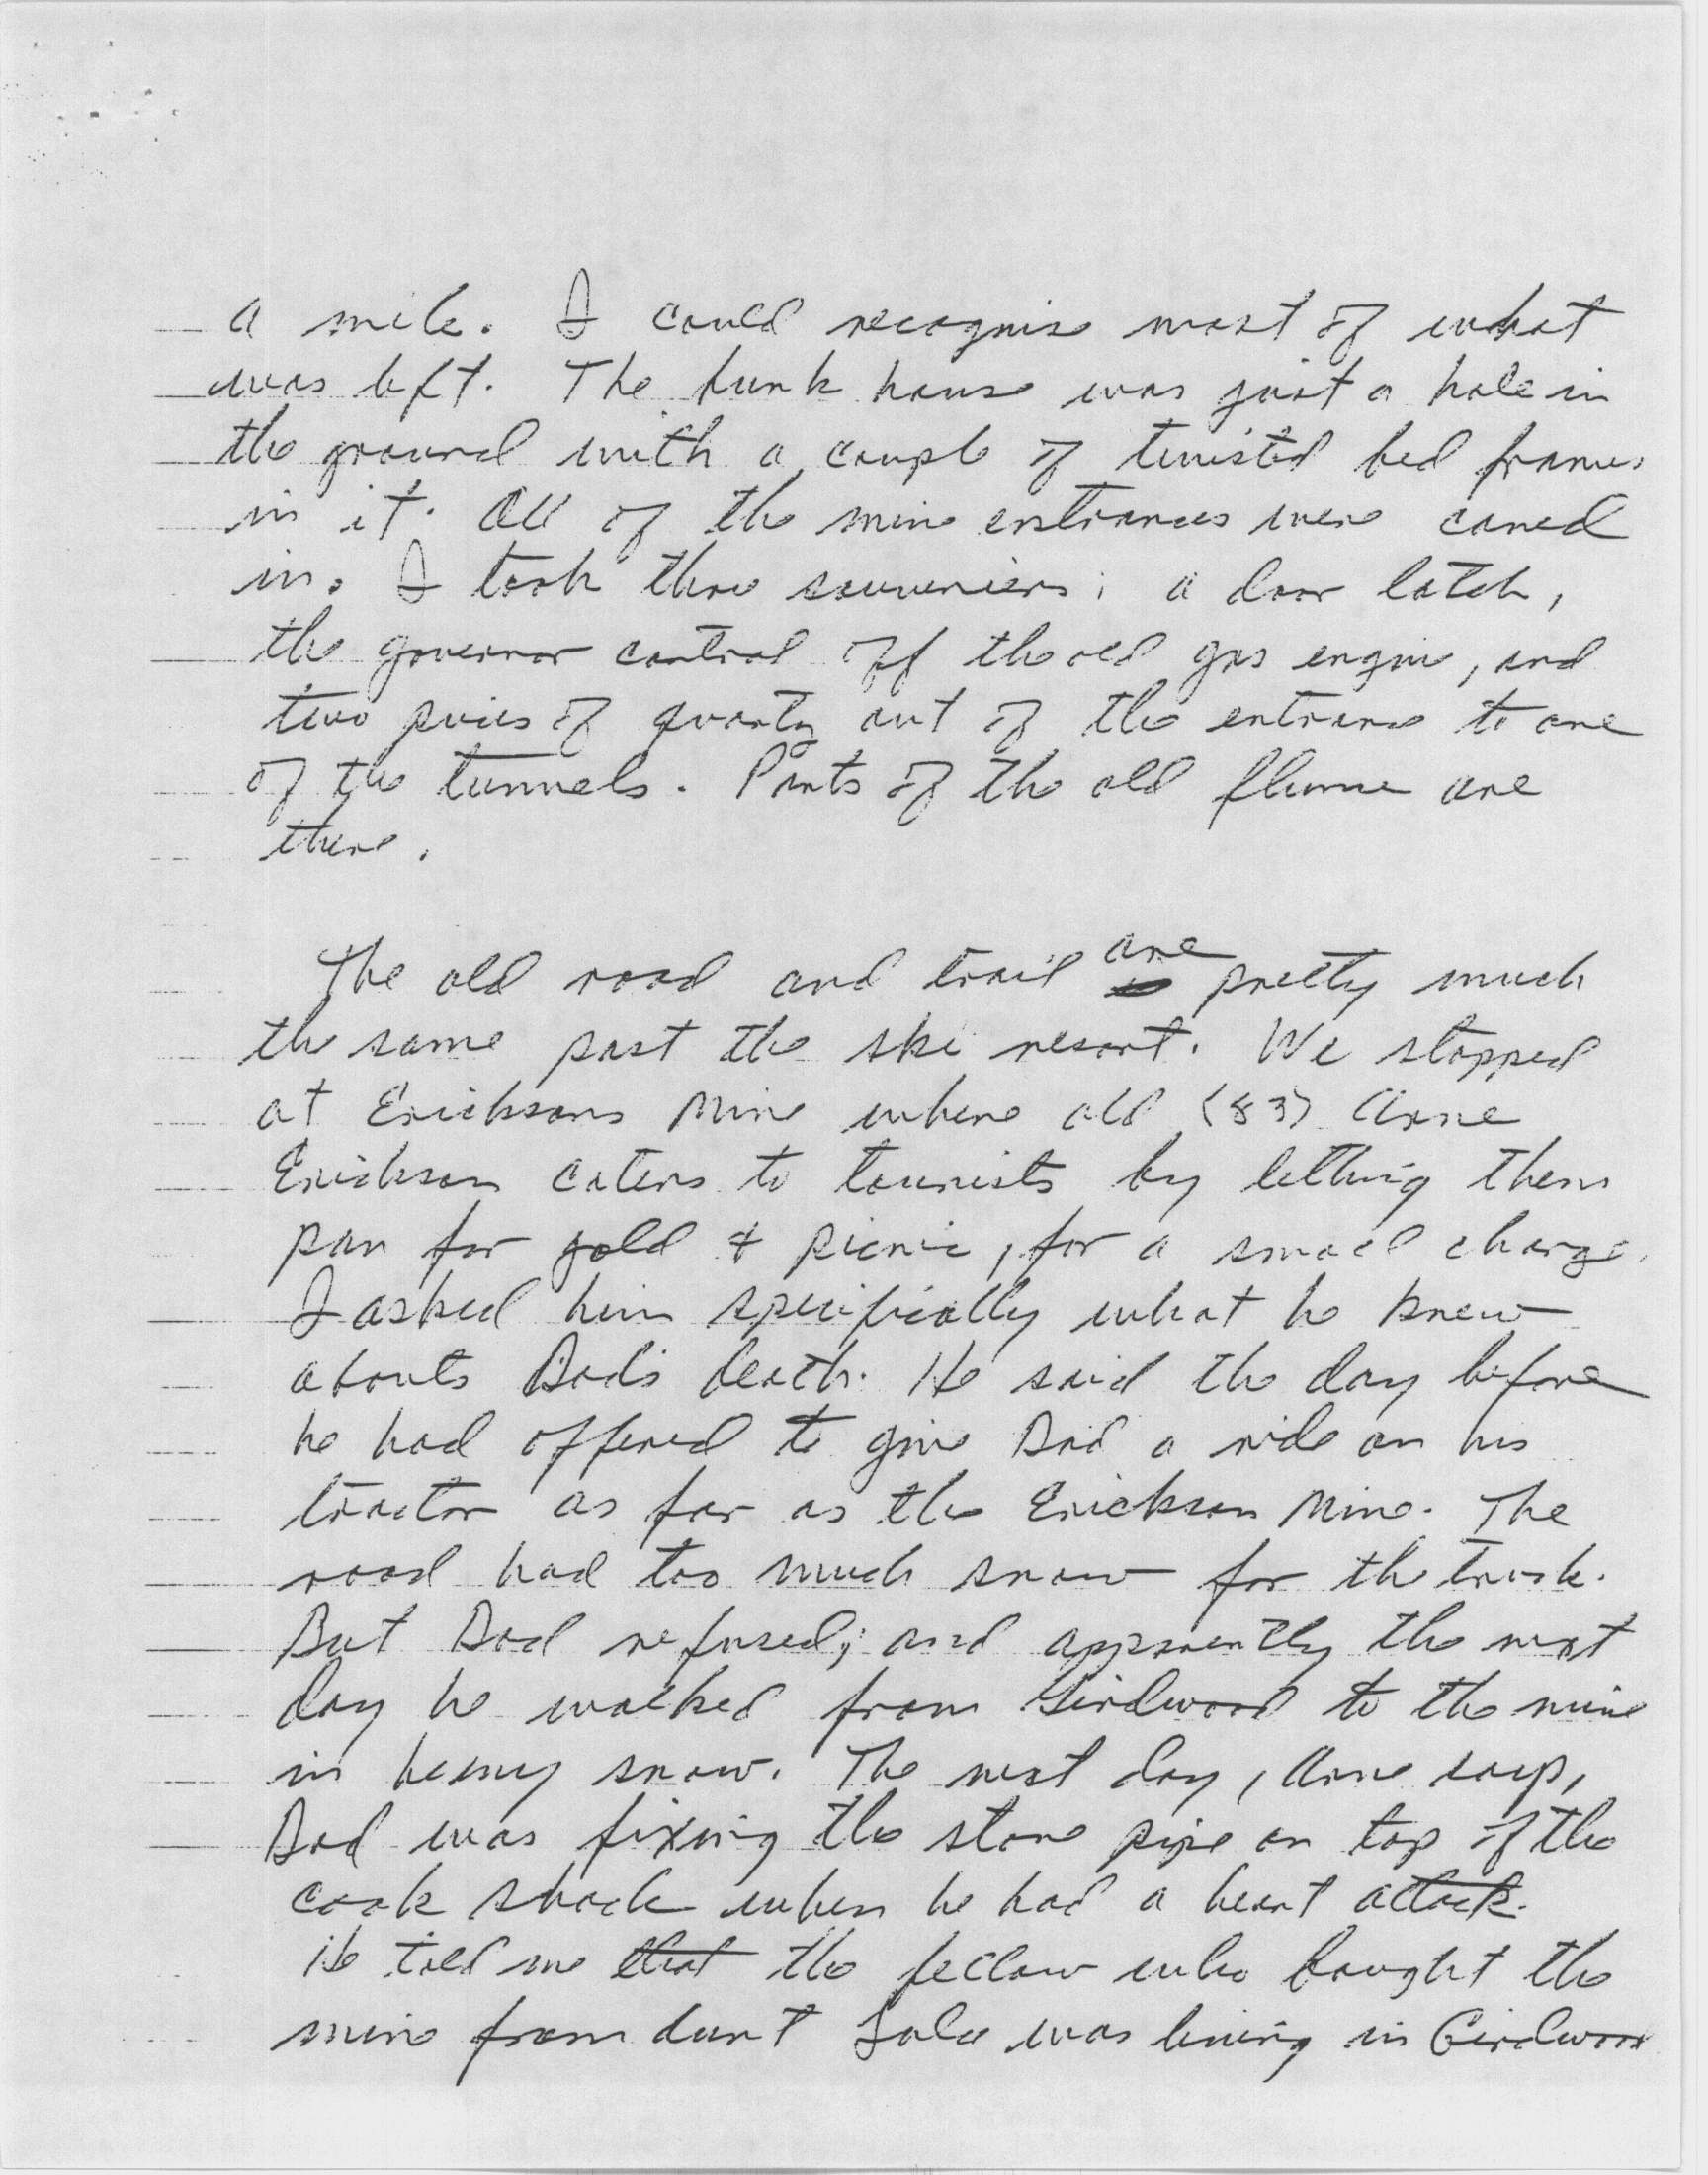 a mile. I could recognise most of what
was left. The bunk house was just a hole in
the ground with a couple of twisted bed frames
in it. All of the mine entrances were caved
in. I took three souveniers; a door latch,
the governor control off the old gas engine, and
two pieces of quartz out of the entrance to one
of the tunnels. Parts of the old flume are
there.
The old road and trail are pretty much
the same past the ski resort. We stopped
at Ericksons Mine where old (83) Arne
Erickson caters to tourists by letting them
pan for gold & picnic, for a small charge.
I asked him specifically what he knew
abouts Dad's death. He said the day before
he had offered to give Dad a ride on his
tractor as far as the Erickson Mine. The
road had too much snow for the truck.
But Dad refused; and apparently the next
day he walked from Girdwood to the mine
in heavy snow. The next day, Arne says,
Dad was fixing the stove pipe on top of the
cook shack when he had a heart attack.
He told me that the fellow who bought the
mine from Aunt was living in Girdwood